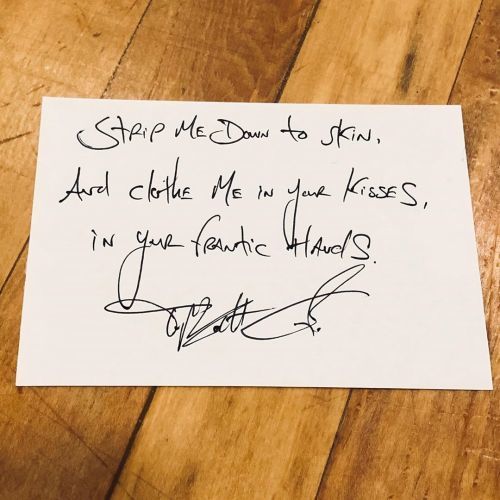 Strip Me Down to skin,
And clothe Me in your Kisses,
in your frantic Hands.